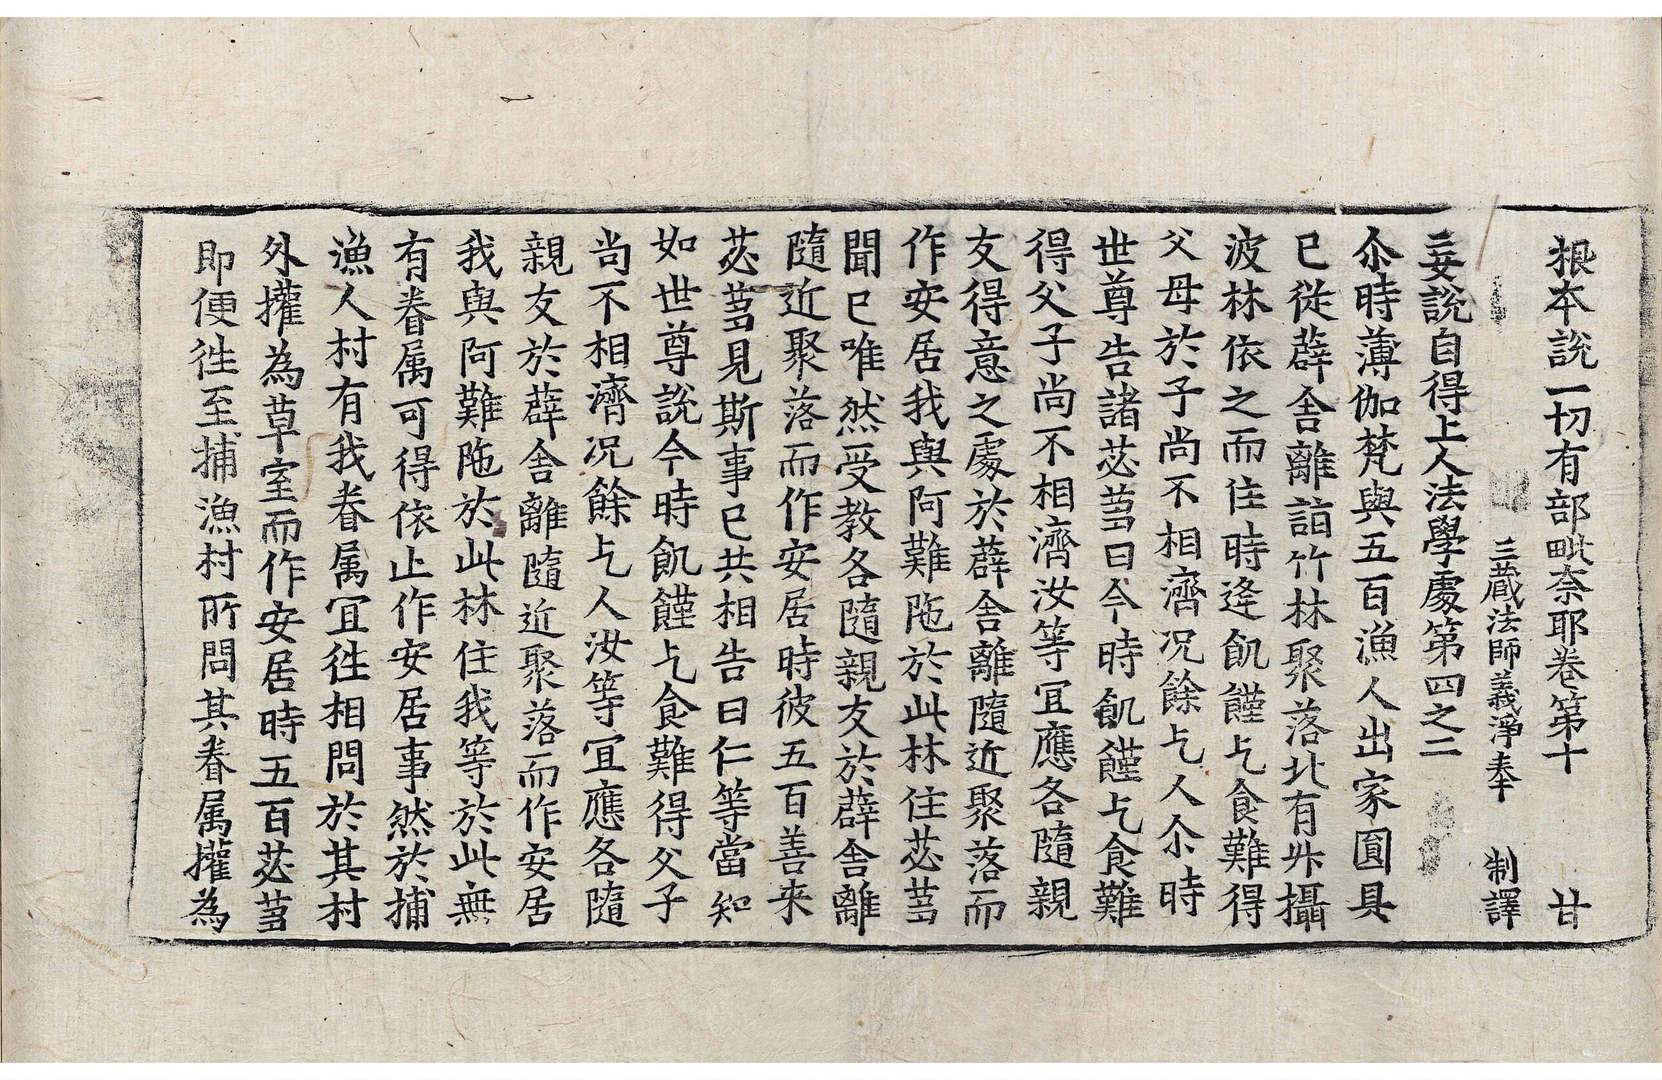 根本說一切有部毗奈耶卷第十　甘
三藏法師義淨奉　制譯
妄說自得上人法學處第四之二
尒時薄伽梵與五百漁人出家圓具
已從薜舍離詣竹林聚落北有升攝
波林依之而住時逢飢饉乞食難得
父母於子尚不相濟况餘乞人尒時
世尊告諸苾蒭曰今時飢饉乞食難
得父子尚不相濟汝等冝應各隨親
友得意之處於薜舍離隨近聚落而
作安居我與阿難陁於此林住苾蒭
聞已唯然受教各隨親友於薜舍離
隨近聚落而作安居時彼五百善来
苾蒭見斯事已共相告曰仁等當知
如世尊說今時飢饉乞食難得父子
尚不相濟况餘乞人汝等冝應各隨
親友於薜舍離隨近聚落而作安居
我與阿難陁於此林住我等於此無
有眷属可得依止作安居事然於捕
漁人村有我眷属冝徃相問於其村
外㩲為草室而作安居時五百苾蒭
即便徃至捕漁村所問其眷属㩲為